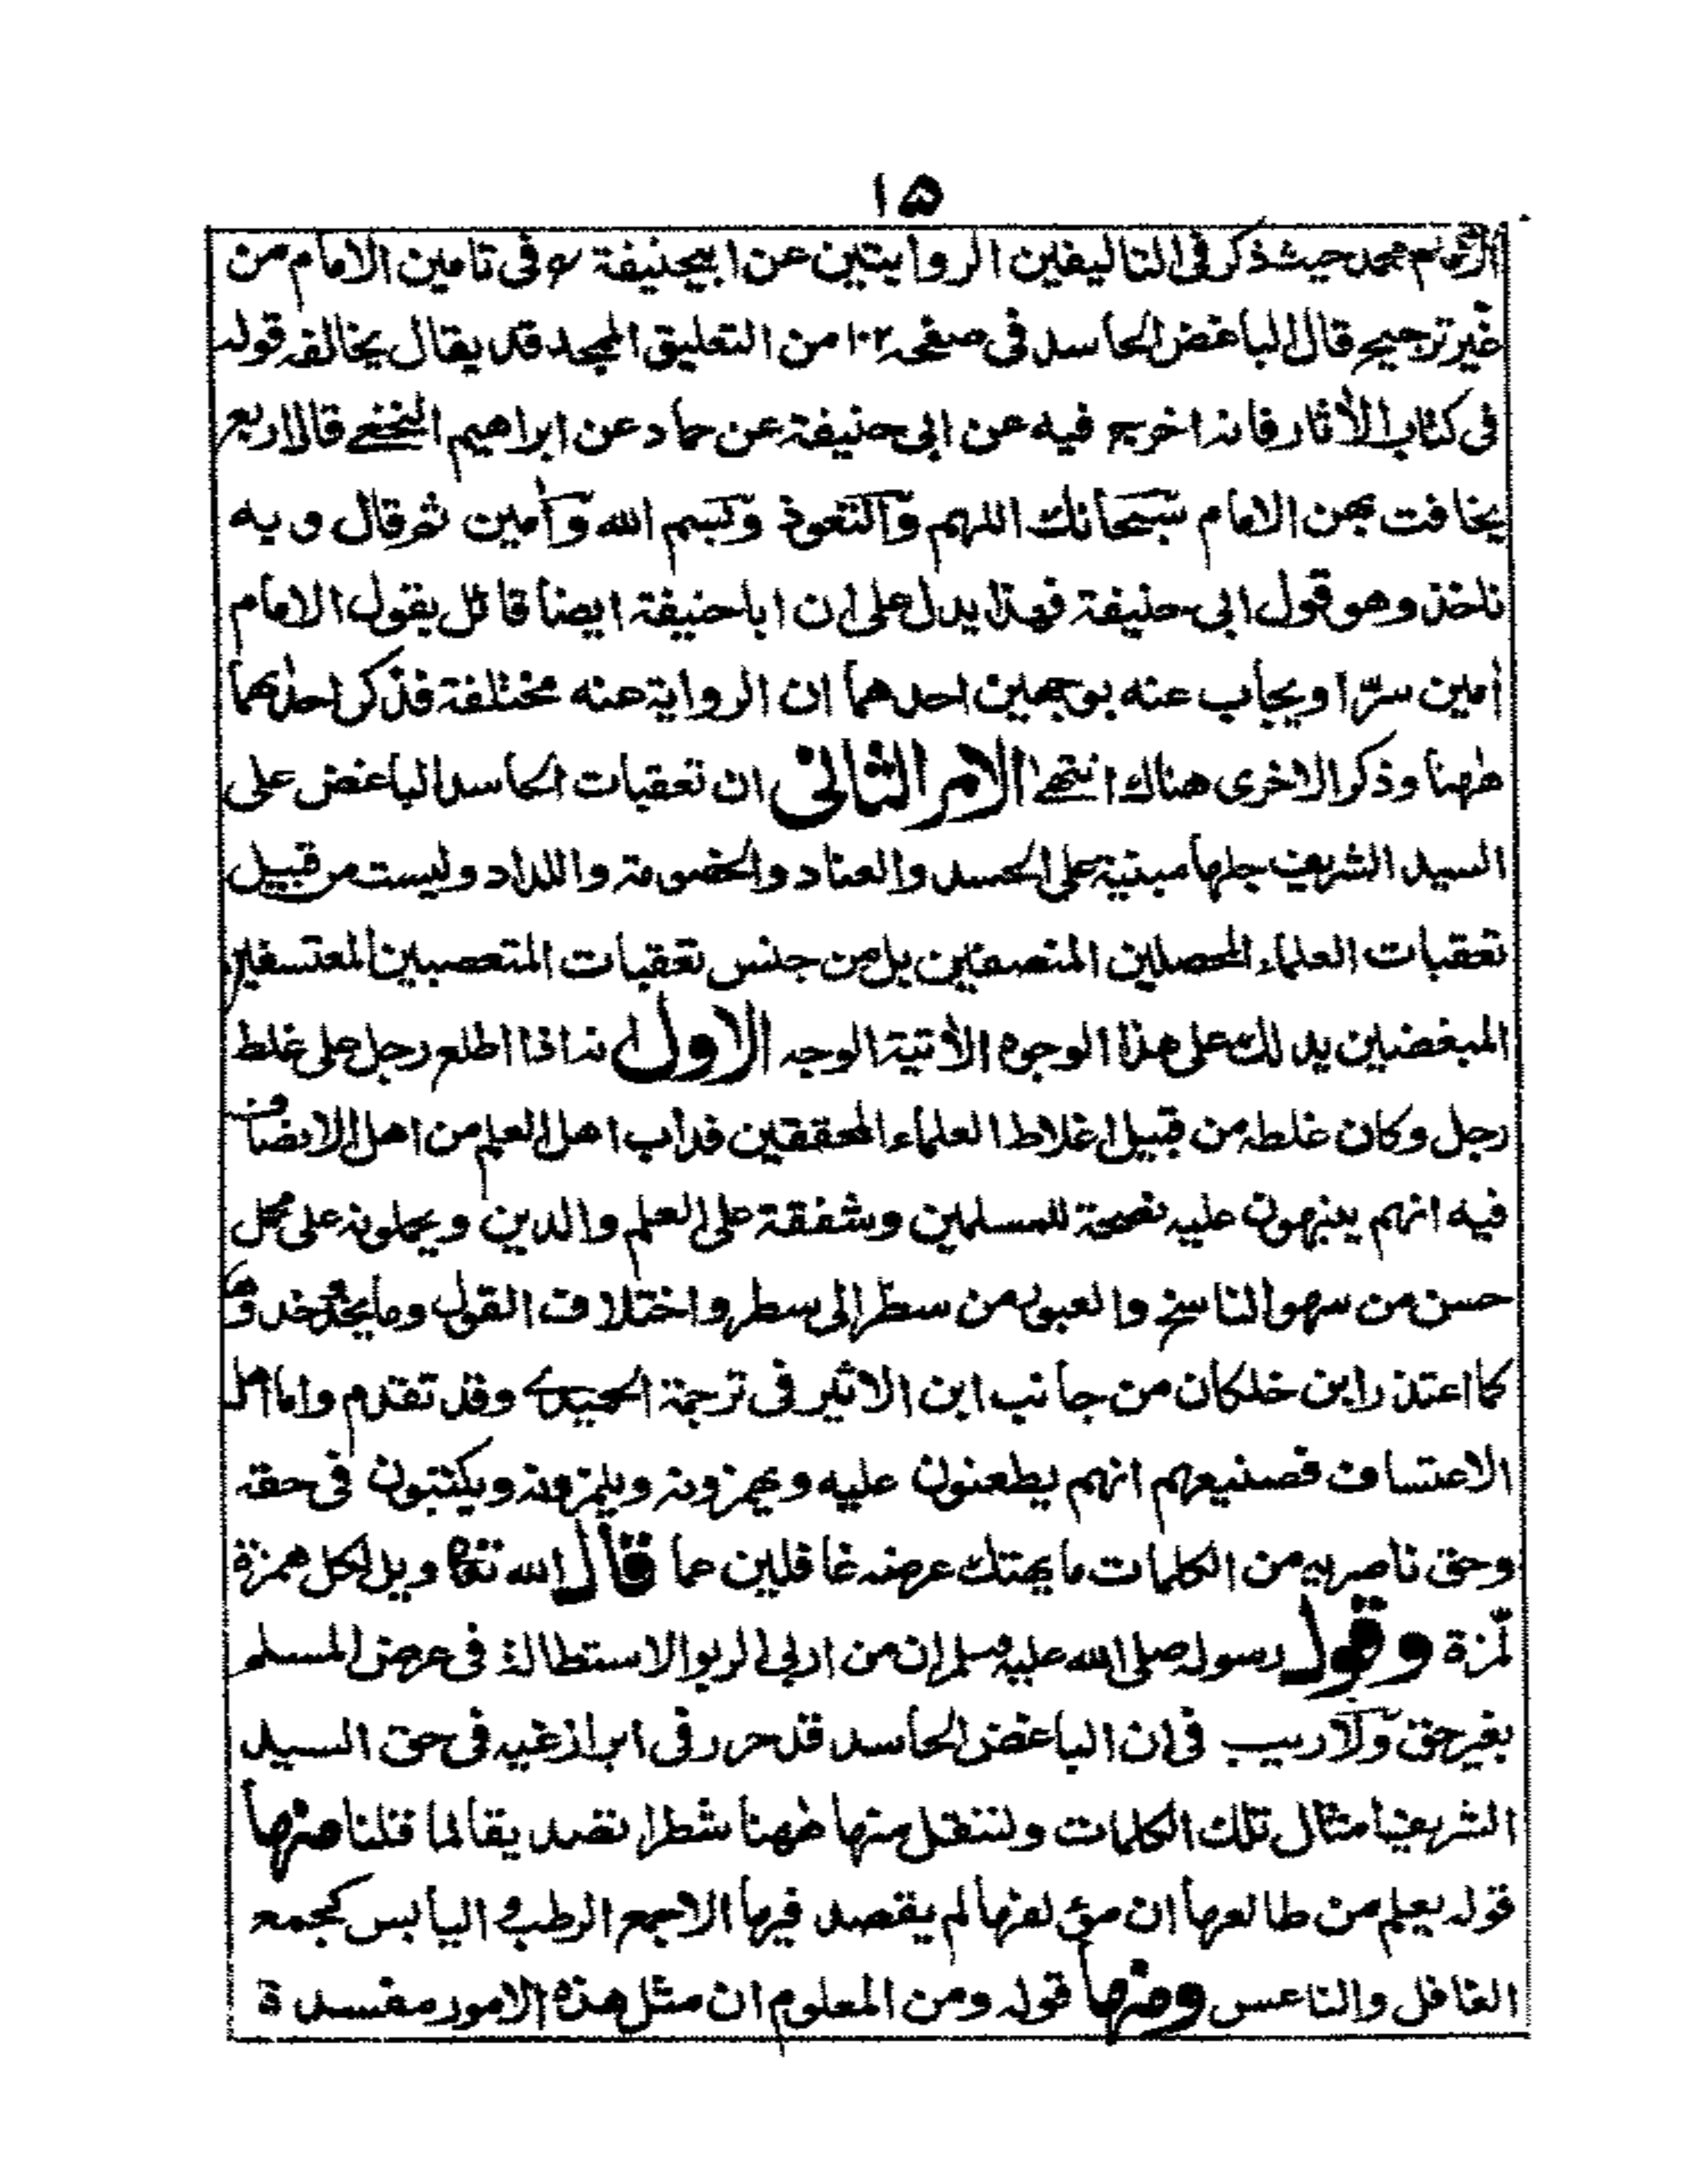 ١٥
محمد حيث ذكر فى التاليفين الروايتين عن ابيحنيفة رح فى تامين الامام من
غير ترجيح قال الباغض الحاسد فى صفحه ١٠٢ من التعليق الممجد قد يقال يخالفه قوله
فى كتاب الأثار فانه اخرج فيه عن ابى حنيفة عن حماد عن ابراهيم النخعے قال اربع
يخافت بهن الامام سبحانك اللهم والتعوذ وبسم الله وأمين ثم قال وبه
ناخذ وهو قول ابى حنيفة فهذا يدل على ان ابا حنيفة ايضا قائل بقول الامام
أمين سرّا ويجاب عنه بوجهين احدهما ان الرواية عنه مختلفة فذكر احدٰهما
هٰهنا وذكر الاخرى هناك انتهے الامر الثانى ان تعقبات الحاسد الباغض على
السيد الشريف جلها مبنية على الحسد والعناد والخصومة واللداد وليست من قبيل
تعقبات العلماء المحصلين المنصفين بل من جنس تعقبات المتعصبين المعتسفين
المبغضين يدلك على هذا الوجوه الأتية الوجه الاول انه اذا اطلع رجل على غلط
رجل وكان غلطه من قبيل اغلاط العلماء المحققين فدأب اهل العلم من اهل الانصاف
فيه انهم ينبهون عليه نصيحة للمسلمين وشفقة على العلم والدين ويحملونه على محمل
حسن من سهو الناسخ والعبور من سطر إلى سطر واختلاف القول وما يحذو حذوها
كما اعتذر ابن خلكان من جانب ابن الاثير فى ترجمة الحميدے وقد تقدم واما اهل
الاعتساف فصنيعهم انهم يطعنون عليه ويهمزونه ويلمزونه ويكتبون فى حقه
وحق ناصريه من الكلمات ما يهتك عرضه غافلين عما قال الله تعالى ويل لكل همزة
لمّزة وقول رسوله صلى الله عليه وسلم إن من اربى الربوا الاستطالة فى عرض المسلم
بغير حق ولا ريب فى ان الباغض الحاسد قد حرر فى ابراز غيه فى حق السيد
الشريف امثال تلك الكلمات ولننقل منها هٰهنا شطرا تصديقا لما قلنا منها
قوله يعلم من طالعها ان مؤلفها لم يقصد فيها الا جمع الرطب واليابس كجمع
الغافل والناعس ومنها قوله ومن المعلوم ان مثل هذه الامور مفسدة